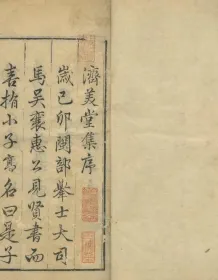 濟美堂集序
歲己卯閩部舉士大司
馬吳襄惠公見賢書而
喜指小子寫名曰是子